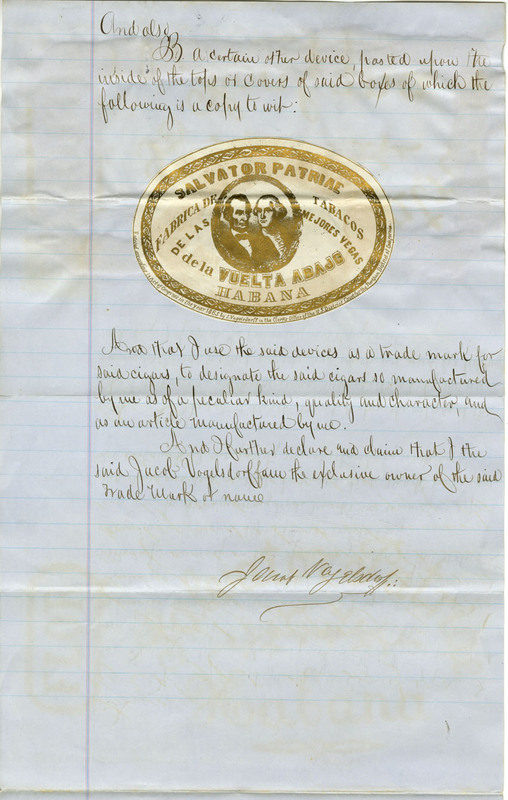 And also
B a certain other device, pasted upon the
insides of the tops or covers of said boxes of which the
following is a copy to wit:
SALVATOR PATRIAE
FABRICA DE TABACOS
DE LAS MEJORES VEGAS
de la VUELTA ABAJO
HABANA
And that I use the said devices as a trade mark for
said cigars, to designate the said cigars so manufactured
by me as of a peculiar kind, quality and character, and
as an article manufactured by me.
And I further declare and claim that I the
said Jacob Vogelsdorff am the exclusive owner of the said
trade mark or name
Jacob Vogelsdorff